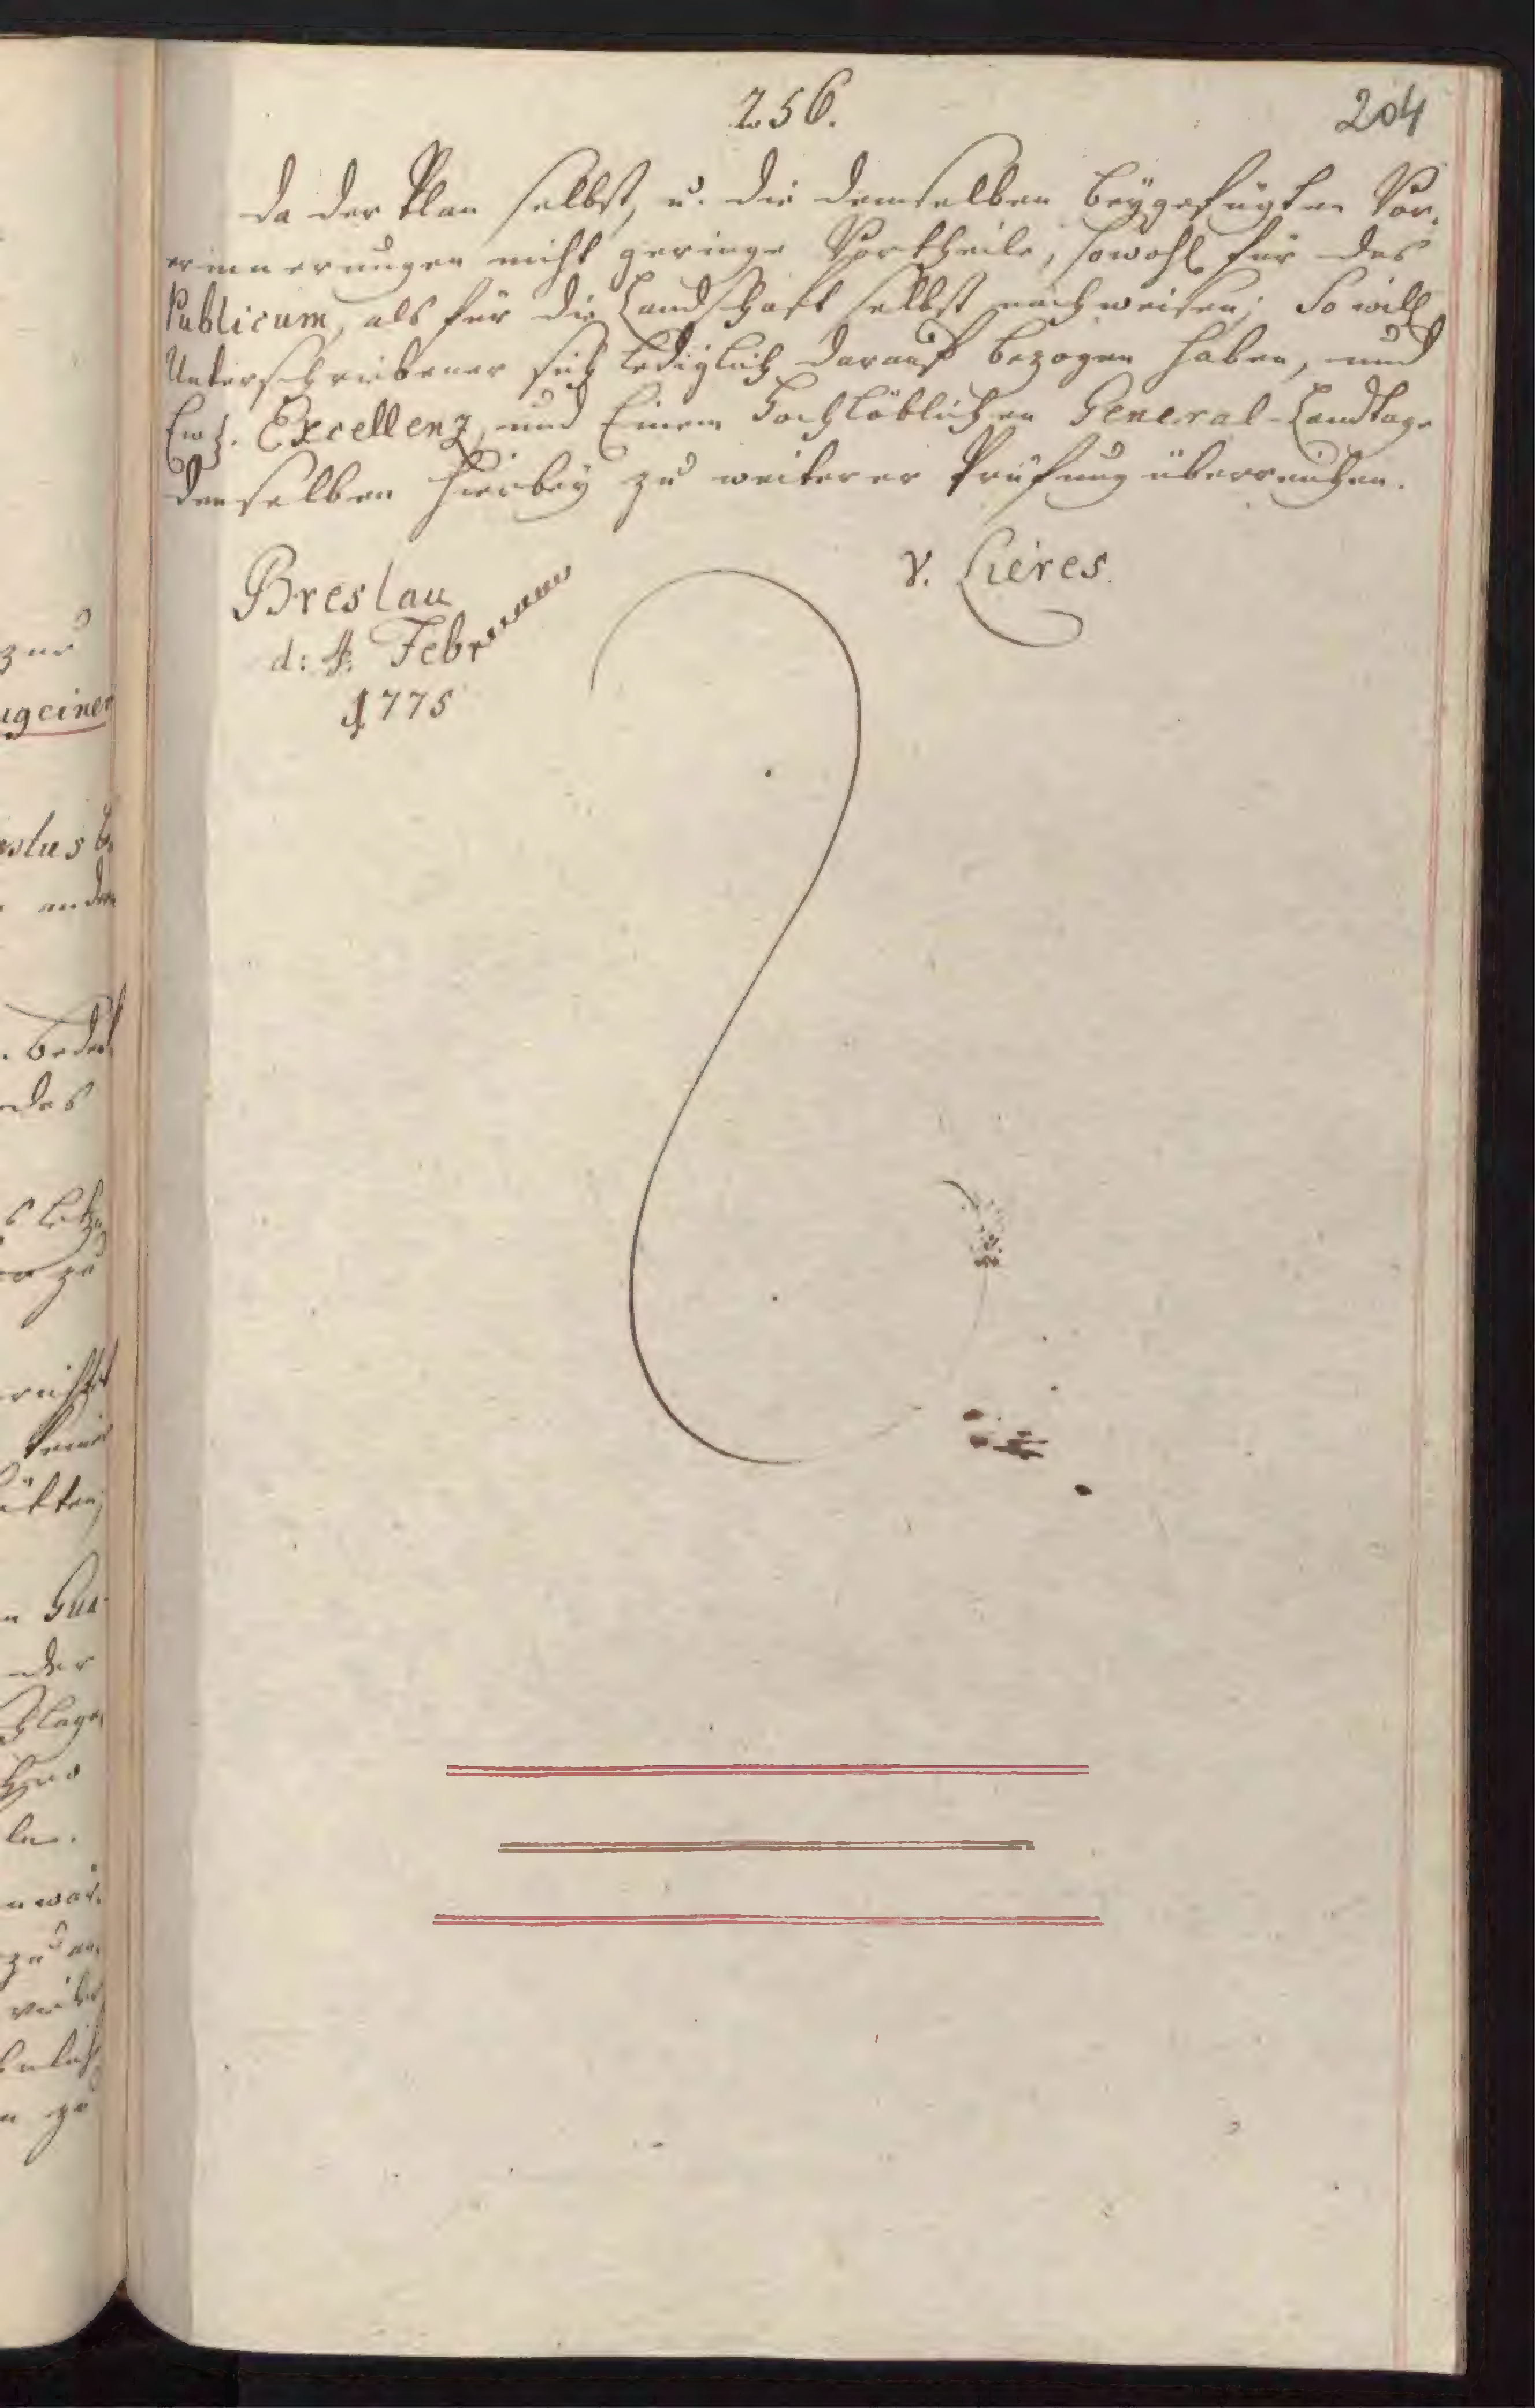 256.
204
da der Plan selbst, u. die demselben beygefügten Vor-
erinnerungen nicht geringe Vortheile, sowohl für das
Publicum, als für die Landschaft selbst nachweisen; So will
Unterschriebener sich lediglich darauf bezogen haben, und
Excellenz, und Einem Hochlöblichen General-Landtage
denselben hierbey zu weiterer Prüfung überreichen.
v. Lieres.
Breslau
d: 4. Febr
1775
zur
einer
andern
des
zu
der
zu
zu